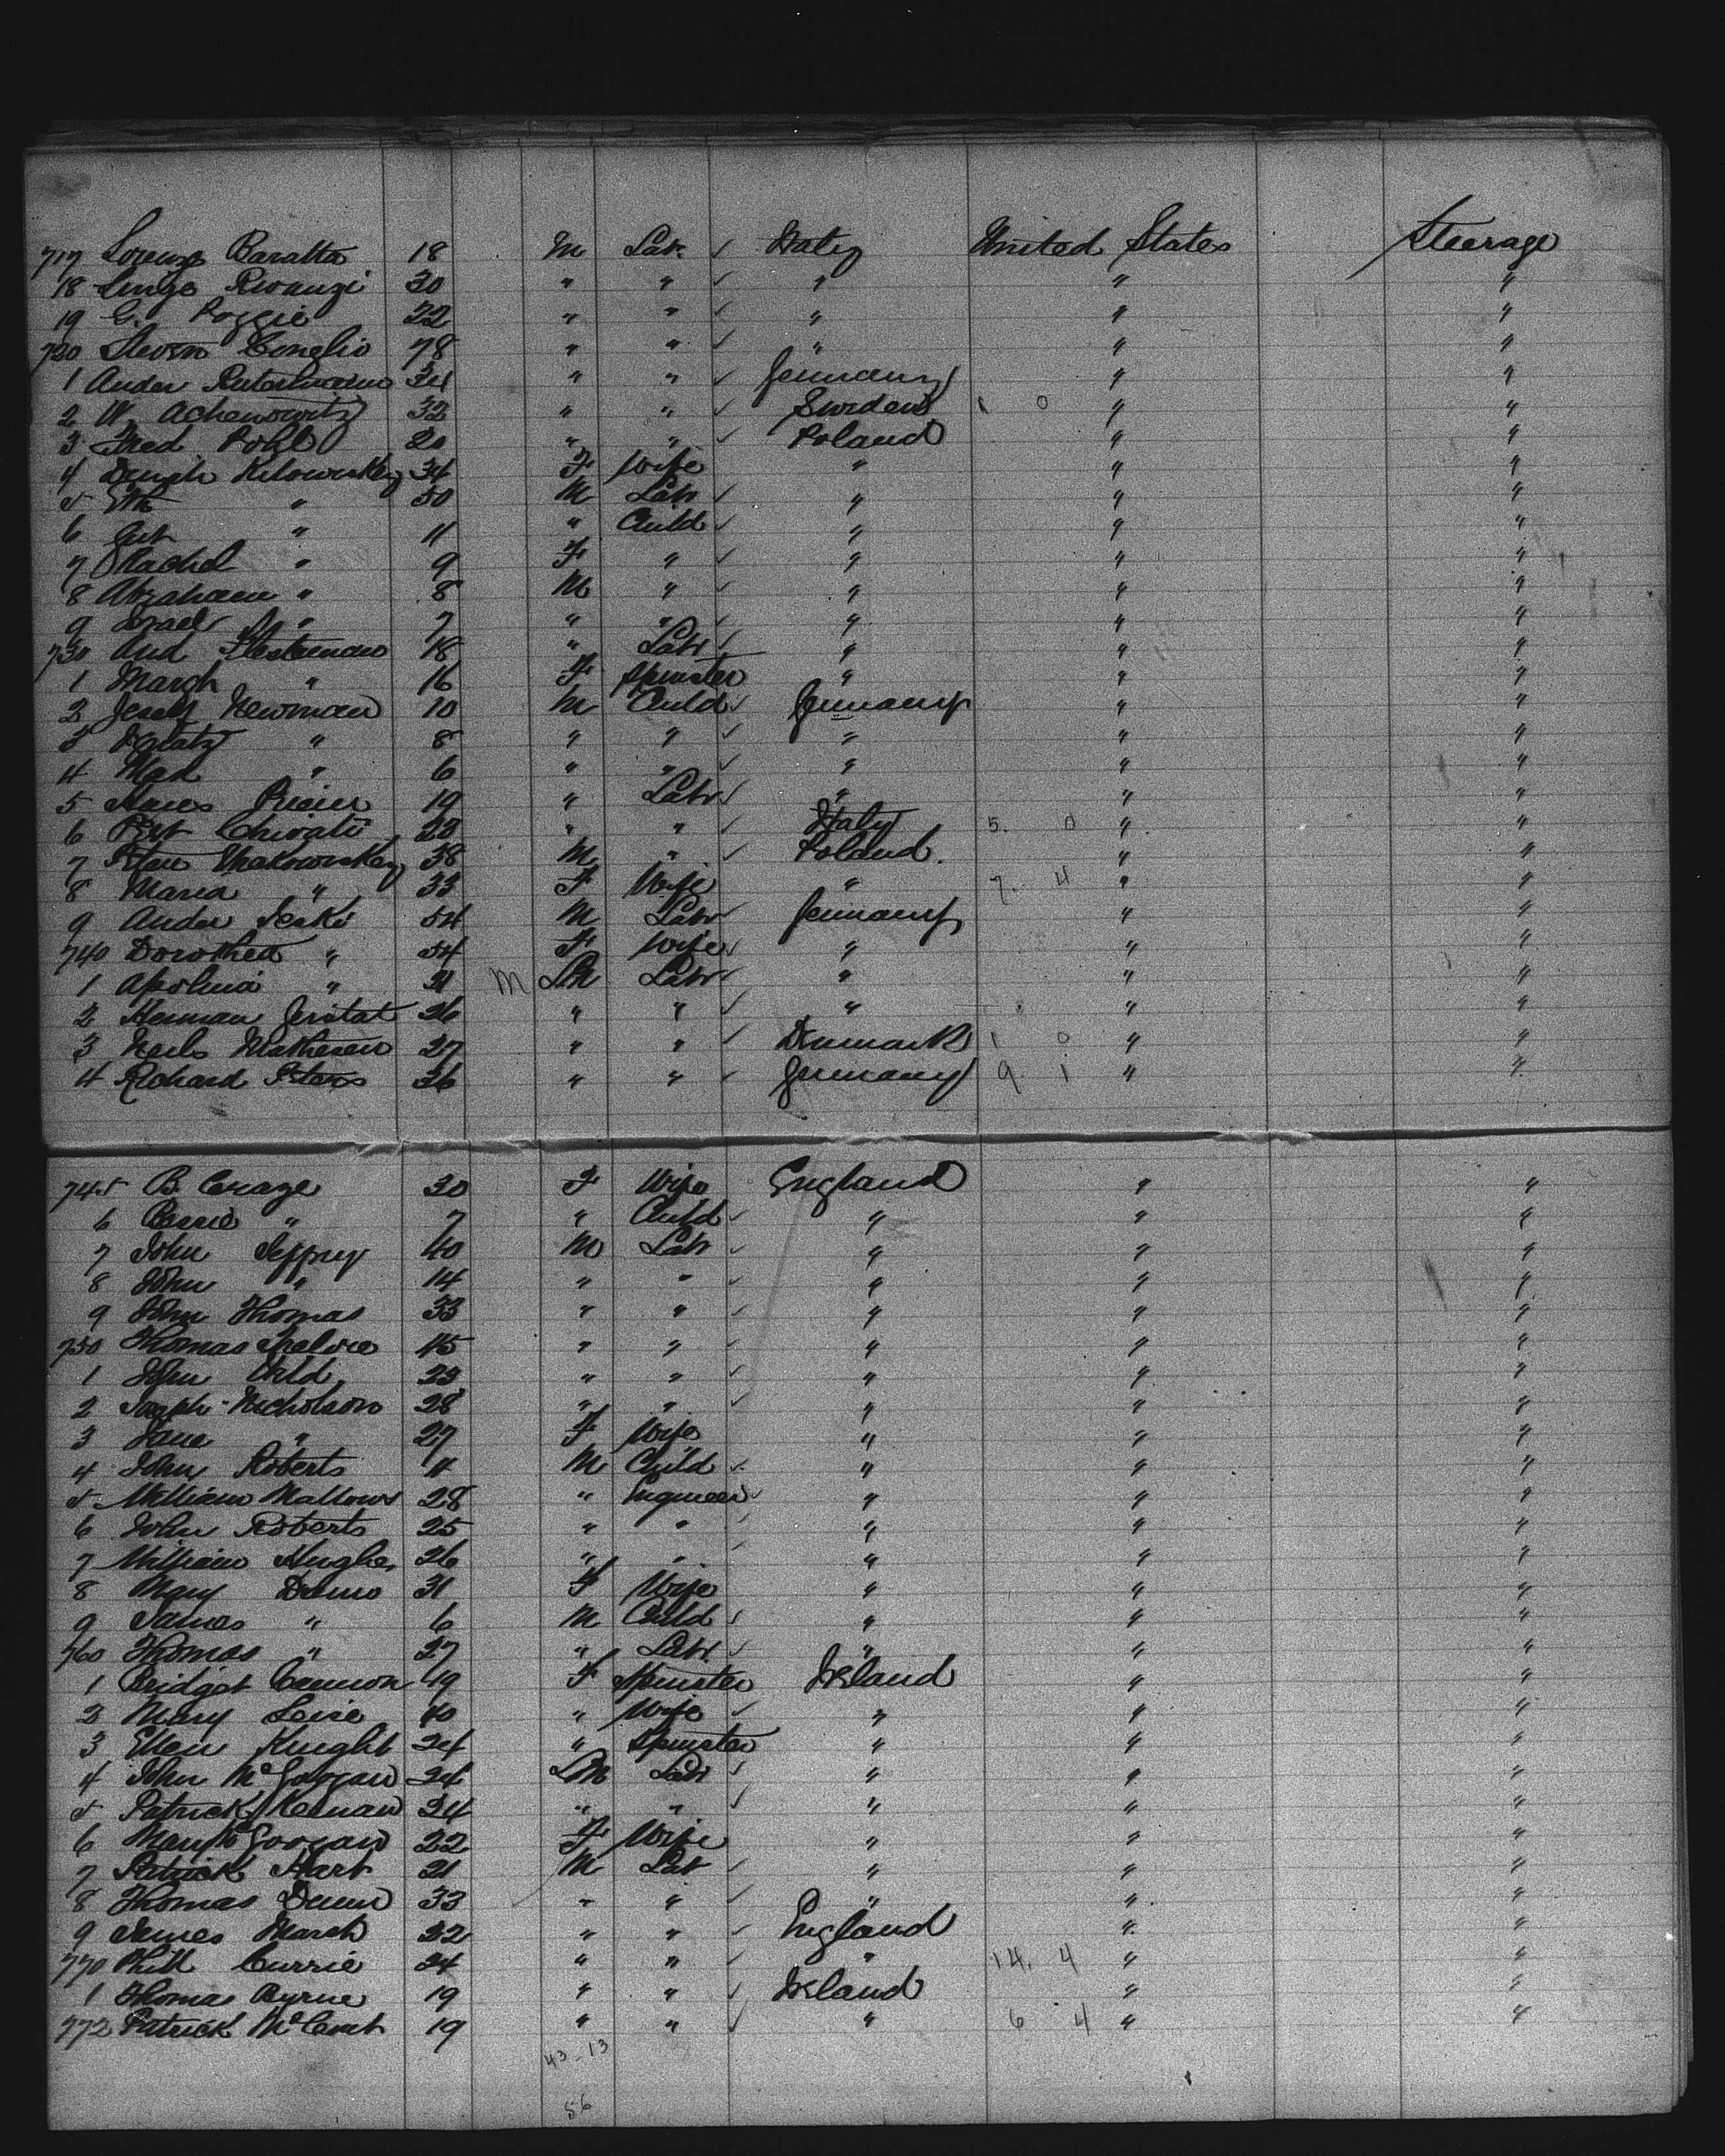 717 Lorenzo Baratta 18 M Lab. ✓ Italy United States Steerage
18 30 " " ✓ " " "
19 G. Poggie 22 " " ✓ " " "
720 Steven 78 " " ✓ " " "
1 Ander 34 " " ✓ Germany " "
2 W. Achenowitz 32 " " ✓ Sweden 1 0 " "
3 Fred Pohl 20 " " ✓ Poland " "
4 34 F Wife " " "
5 " 50 M Labr ✓ " " "
6 " 11 " Child ✓ " " "
7 Rachel " 9 F " ✓ " " "
8 Abraham " 8 M " ✓ " " "
9 Israel " 7 " " ✓ " " "
730 And 18 " Labr ✓ " " "
1 Margh " 16 F Spinster " " "
2 Newman 10 M Child ✓ Germany " "
3 " 8 " " ✓ " " "
4 Max " 6 " " ✓ " " "
5 19 " Labr ✓ " " "
6 Chivati 28 " " ✓ Italy 5. 0 " "
7 38 M " ✓ Poland. " "
8 Maria " 33 F Wife " 7. 4 " "
9 Ander Jeske 54 M Labr ✓ Germany " "
740 Dorothea " 54 F Wife " " "
1 Apolina " 31 M M Labr ✓ " " "
2 Herman Jeritat 26 " " ✓ " " "
3 Neils Mathesen 27 " " ✓ Denmark 1 0 " "
4 Richard Peters 36 " " ✓ Germany 9. 1 " "
745 B. Craze 30 F Wife England " "
6 Bessie " 7 " Child ✓ " " "
7 John Jeffrey 40 M Labr ✓ " " "
8 John " 14 " " ✓ " " "
9 John Thomas 33 " " ✓ " " "
750 Thomas 45 " " ✓ " " "
1 John 23 " " ✓ " " "
2 Joseph Nicholson 28 " " ✓ " " "
3 Jane " 27 F Wife " " "
4 John Roberts 11 M Child ✓ " " "
5 William Mallows 28 " Engineer ✓ " " "
6 John Roberts 25 " " ✓ " " "
7 William Hughes 26 " " ✓ " " "
8 Mary 31 F Wife " " "
9 James " 6 M Child ✓ " " "
760 Thomas " 27 " Labr ✓ " " "
1 Bridget Cannon 19 F Spinster Ireland " "
2 Mary 40 " Wife ✓ " " "
3 Ellen Knight 24 " Spinster " " "
4 John 24 M Labr ✓ " " "
5 Patrick Kernan 24 " " ✓ " " "
6 Mary 22 F Wife " " "
7 Patrick Hart 21 M Lab ✓ " " "
8 Thomas Dunn 33 " " ✓ " " "
9 James Marsh 22 " " ✓ England " "
770 Phill Currie 24 " " ✓ " 14. 4 " "
1 Thomas Byrne 19 " " ✓ Ireland " "
772 Patrick 19 " " ✓ " 6 4 " "
43 - 13
56